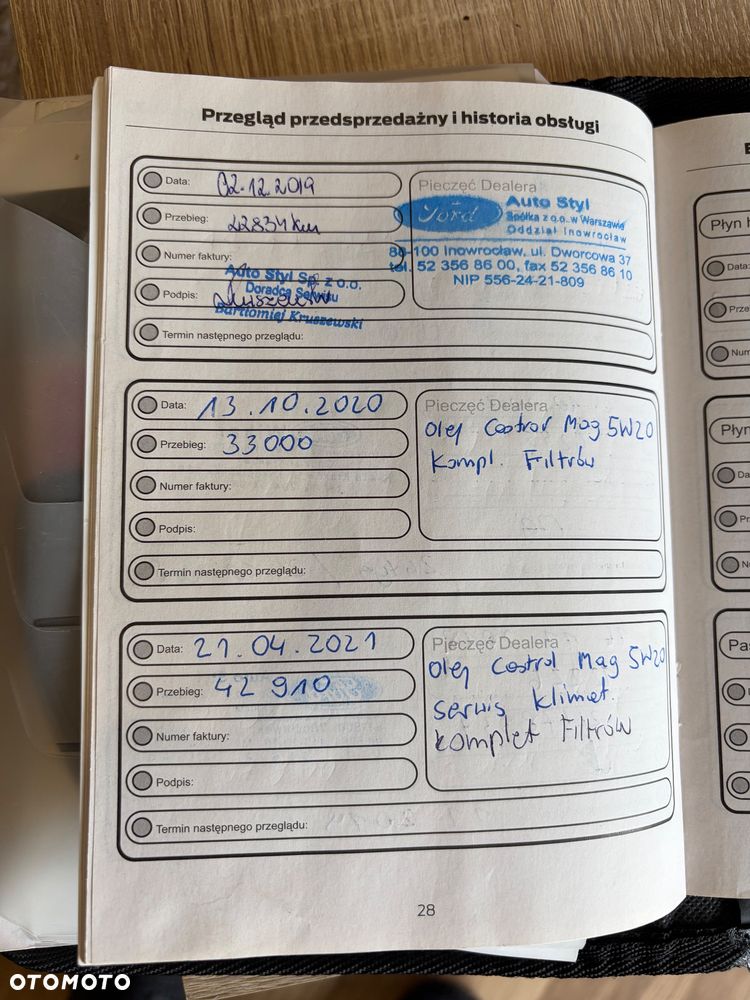 Przegląd przedsprzedażny i historia obsługi
Data: 02.12.2019
Przebieg: 22834 km
Numer faktury:
Podpis:
Auto Styl Sp. z o.o.
Doradca Serwisu
Bartłomiej Kruszewski
Termin następnego przeglądu:
Pieczęć Dealera
Ford
Auto Styl
Spółka z o.o. w Warszawie
Oddział Inowrocław
88-100 Inowrocław, ul. Dworcowa 37
tel. 52 356 86 00, fax 52 356 86 10
NIP 556-24-21-809
Data: 13.10.2020
Przebieg: 33000
Numer faktury:
Podpis:
Termin następnego przeglądu:
Pieczęć Dealera
Olej Castrol Mag 5W20
Kompl. Filtrów
Data: 21.04.2021
Przebieg: 42 910
Numer faktury:
Podpis:
Termin następnego przeglądu:
Pieczęć Dealera
Olej Castrol Mag 5W20
serwis klimat.
komplet Filtrów
28
Płyn
Data:
Prze
Num
Płyn
Da
Pr
N
Pa
OTOMOTO